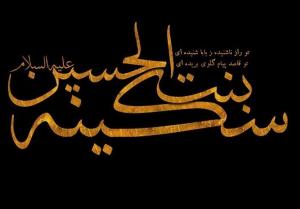 تو راز ناشنیده ز بابا شنیده ای
تو قاصد پیام گلوی بریده ای
علیه السلام
سکینه بنت الحسین